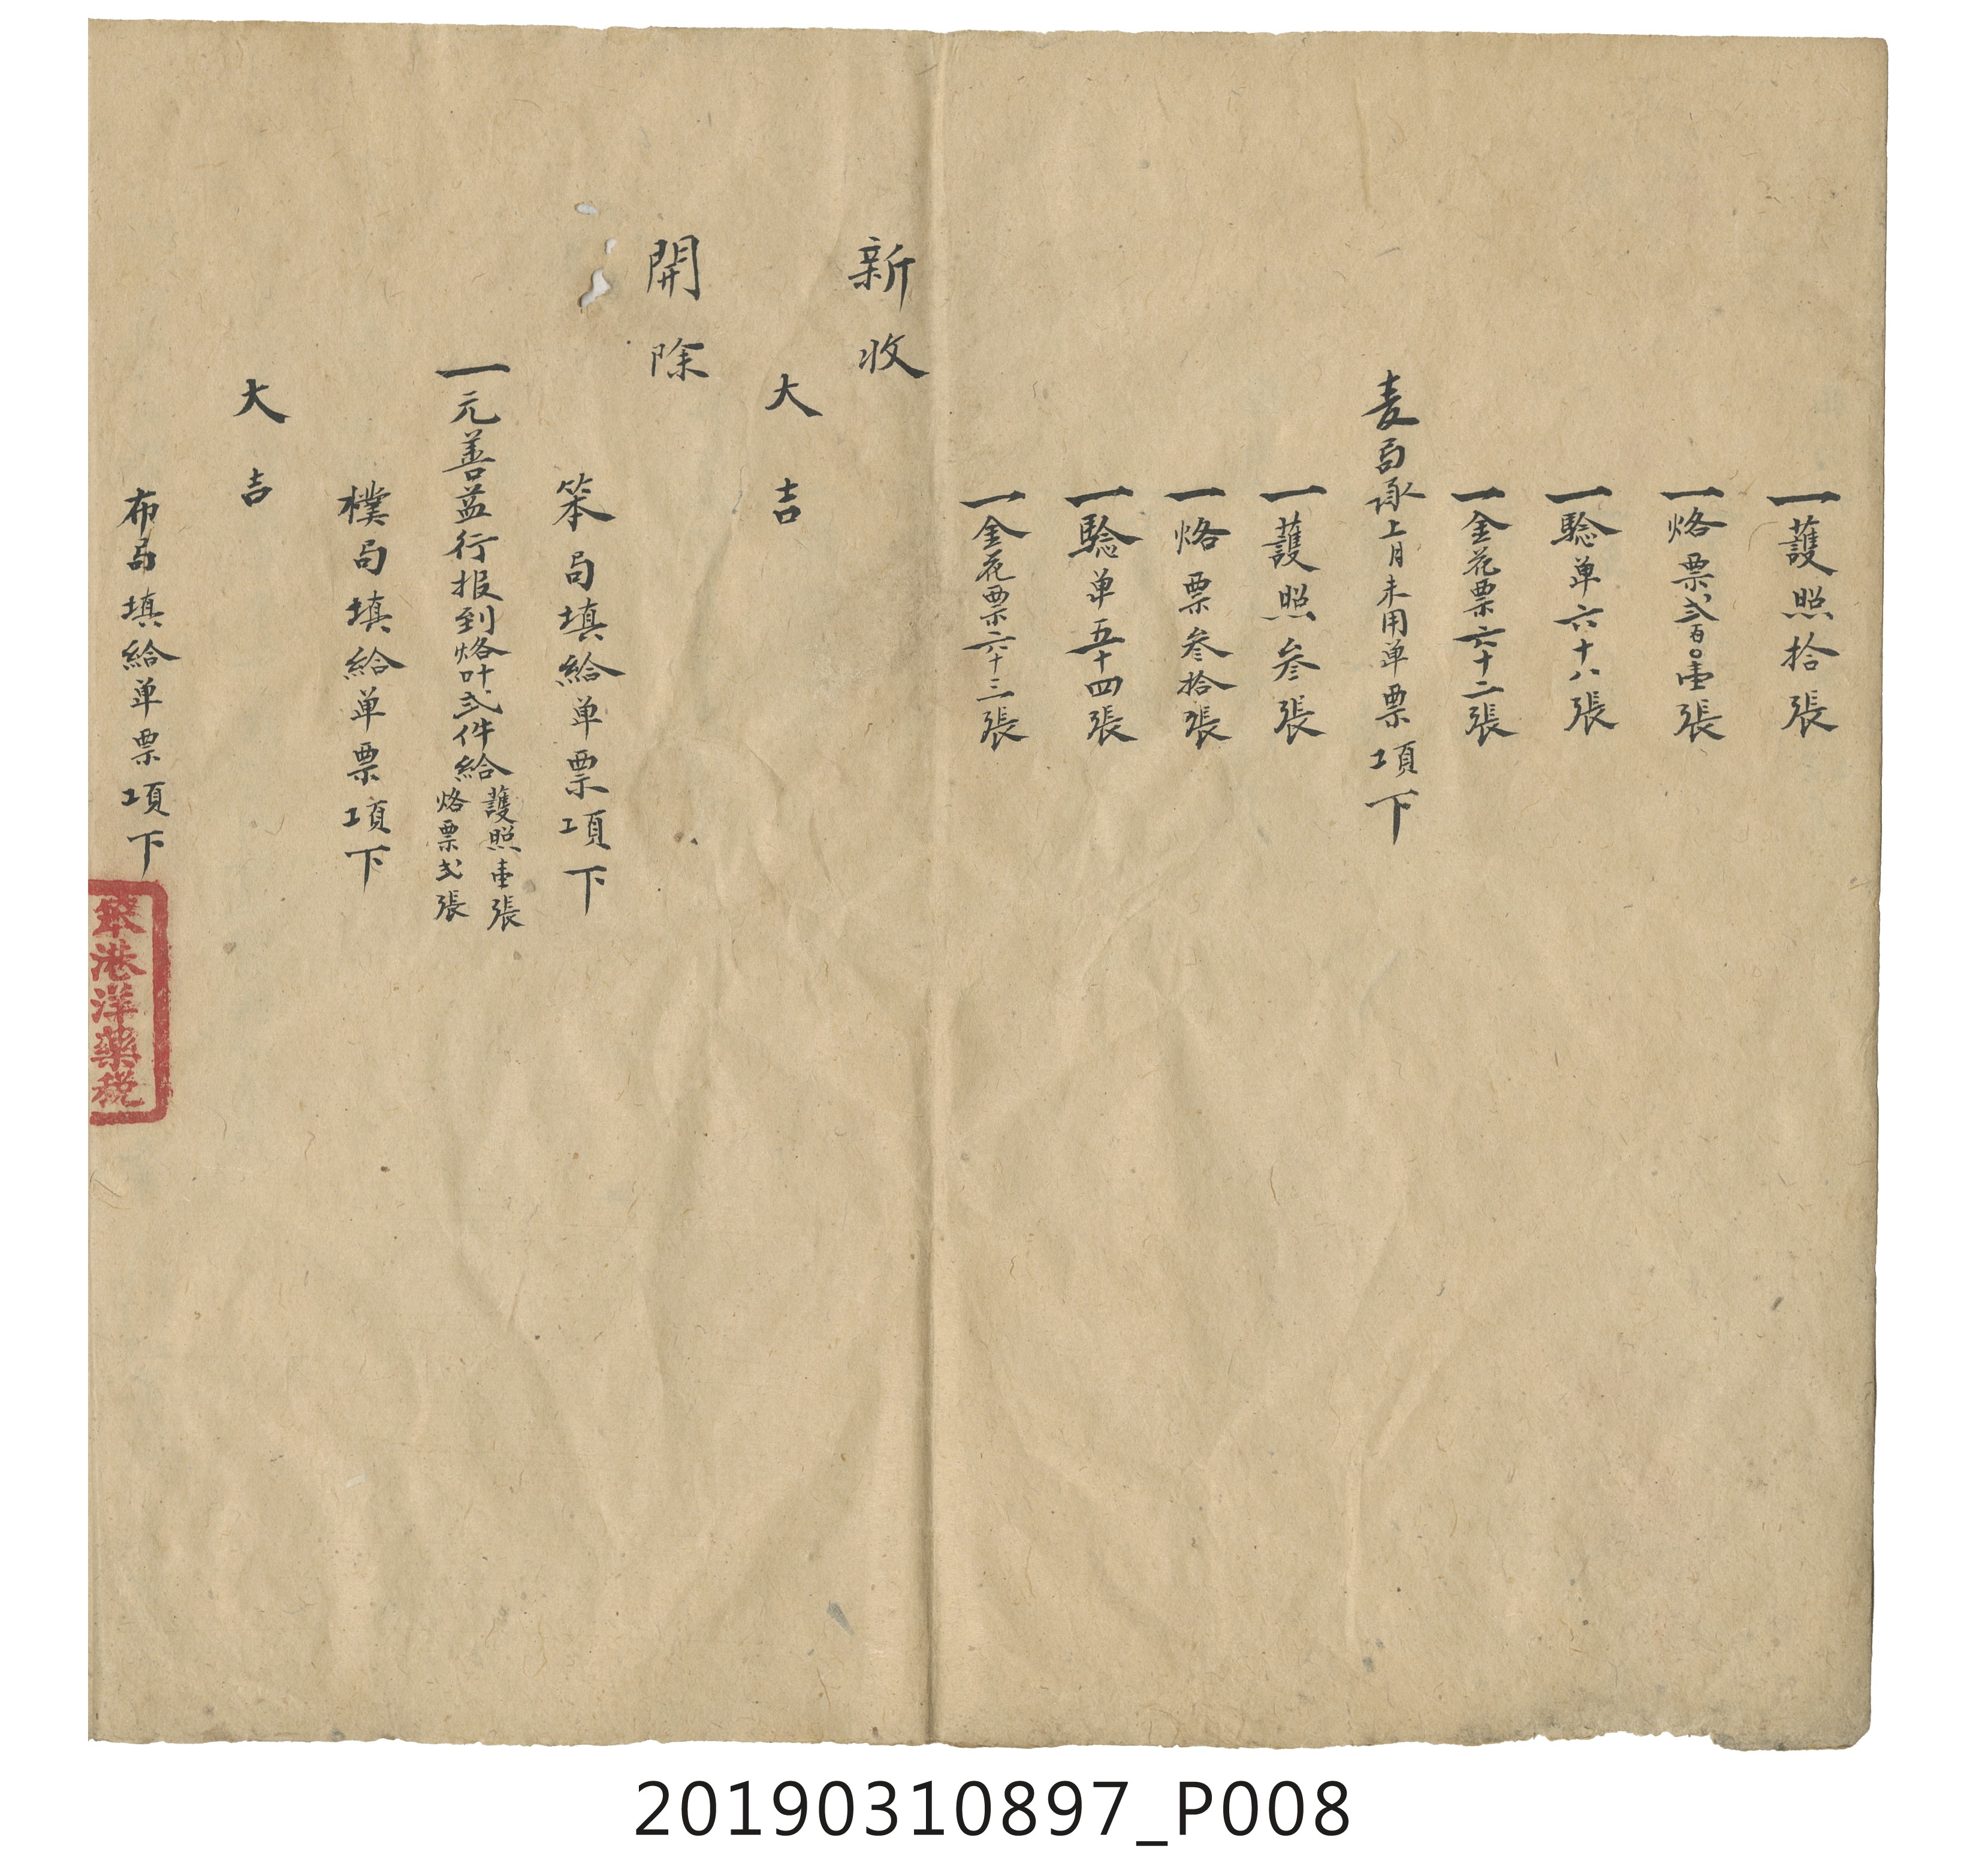 一護照拾張
一烙票弍百〇壹張
一驗单六十八張
一金花票六十二張
麦局承上月未用单票項下
一護照叁張
一烙票叁拾張
一驗单五十四張
一金花票六十三張
新收
大吉
開除
笨局填給单票項下
一元善益行报到烙叶弍件給護照壹張
烙票弍張
樸局填給单票項下
大吉
布局填給单票項下
笨港洋藥稅
20190310897_P008